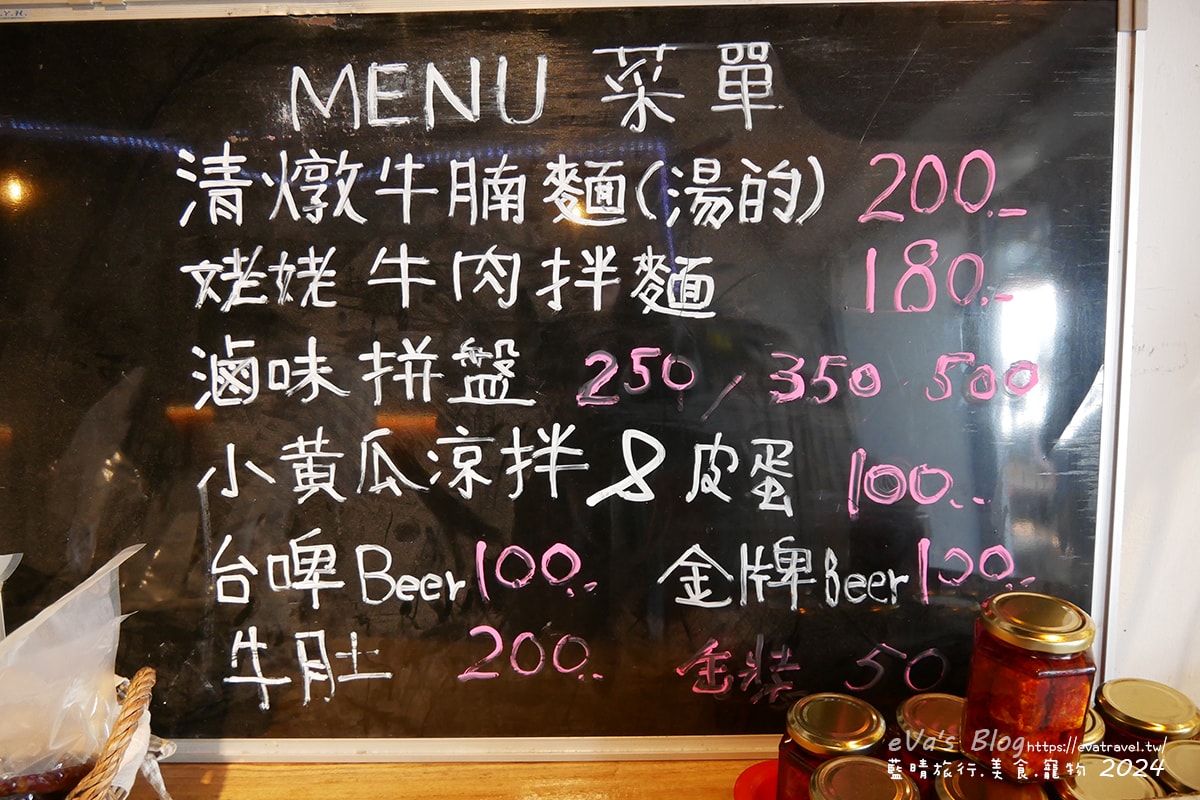 MENU 菜單
清燉牛腩麵(湯的) 200.-
姥姥牛肉拌麵 180.-
滷味拼盤 250 / 350 500
小黃瓜涼拌 & 皮蛋 100.-
台啤Beer 100.- 金牌Beer 100.-
牛肚 200.- 缶裝 50
eVa's Blog https://evatravel.tw/
藍晴旅行.美食.寵物 2024